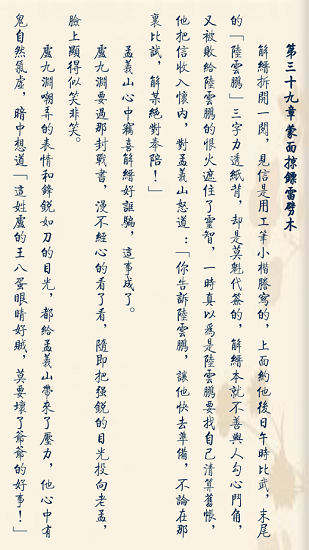 第三十九章 蒙面掠鏢雷劈木
解縉拆開一閱，見信是用工筆小楷謄寫的，上面約他後日午時比武，末尾
的「陸雲鵬」三字力透紙背，卻是莫魁代簽的，解縉本就不善與人勾心鬥角，
又被敗給陸雲鵬的恨火遮住了靈智，一時真以為是陸雲鵬要找自己清算舊帳，
他把信收入懷內，對孟義山怒道：「你告訴陸雲鵬，讓他快去準備，不論在那
裏比試，解某絕對奉陪！」
孟義山心中竊喜解縉好誆騙，這事成了。
盧九淵要過那封戰書，漫不經心的看了看，隨即把强銳的目光投向老孟，
臉上顯得似笑非笑。
盧九淵嘲弄的表情和鋒銳如刀的目光，都給孟義山帶來了壓力，他心中有
鬼自然氣虛，暗中想道「這姓盧的王八蛋眼睛好賊，莫要壞了爺爺的好事！」